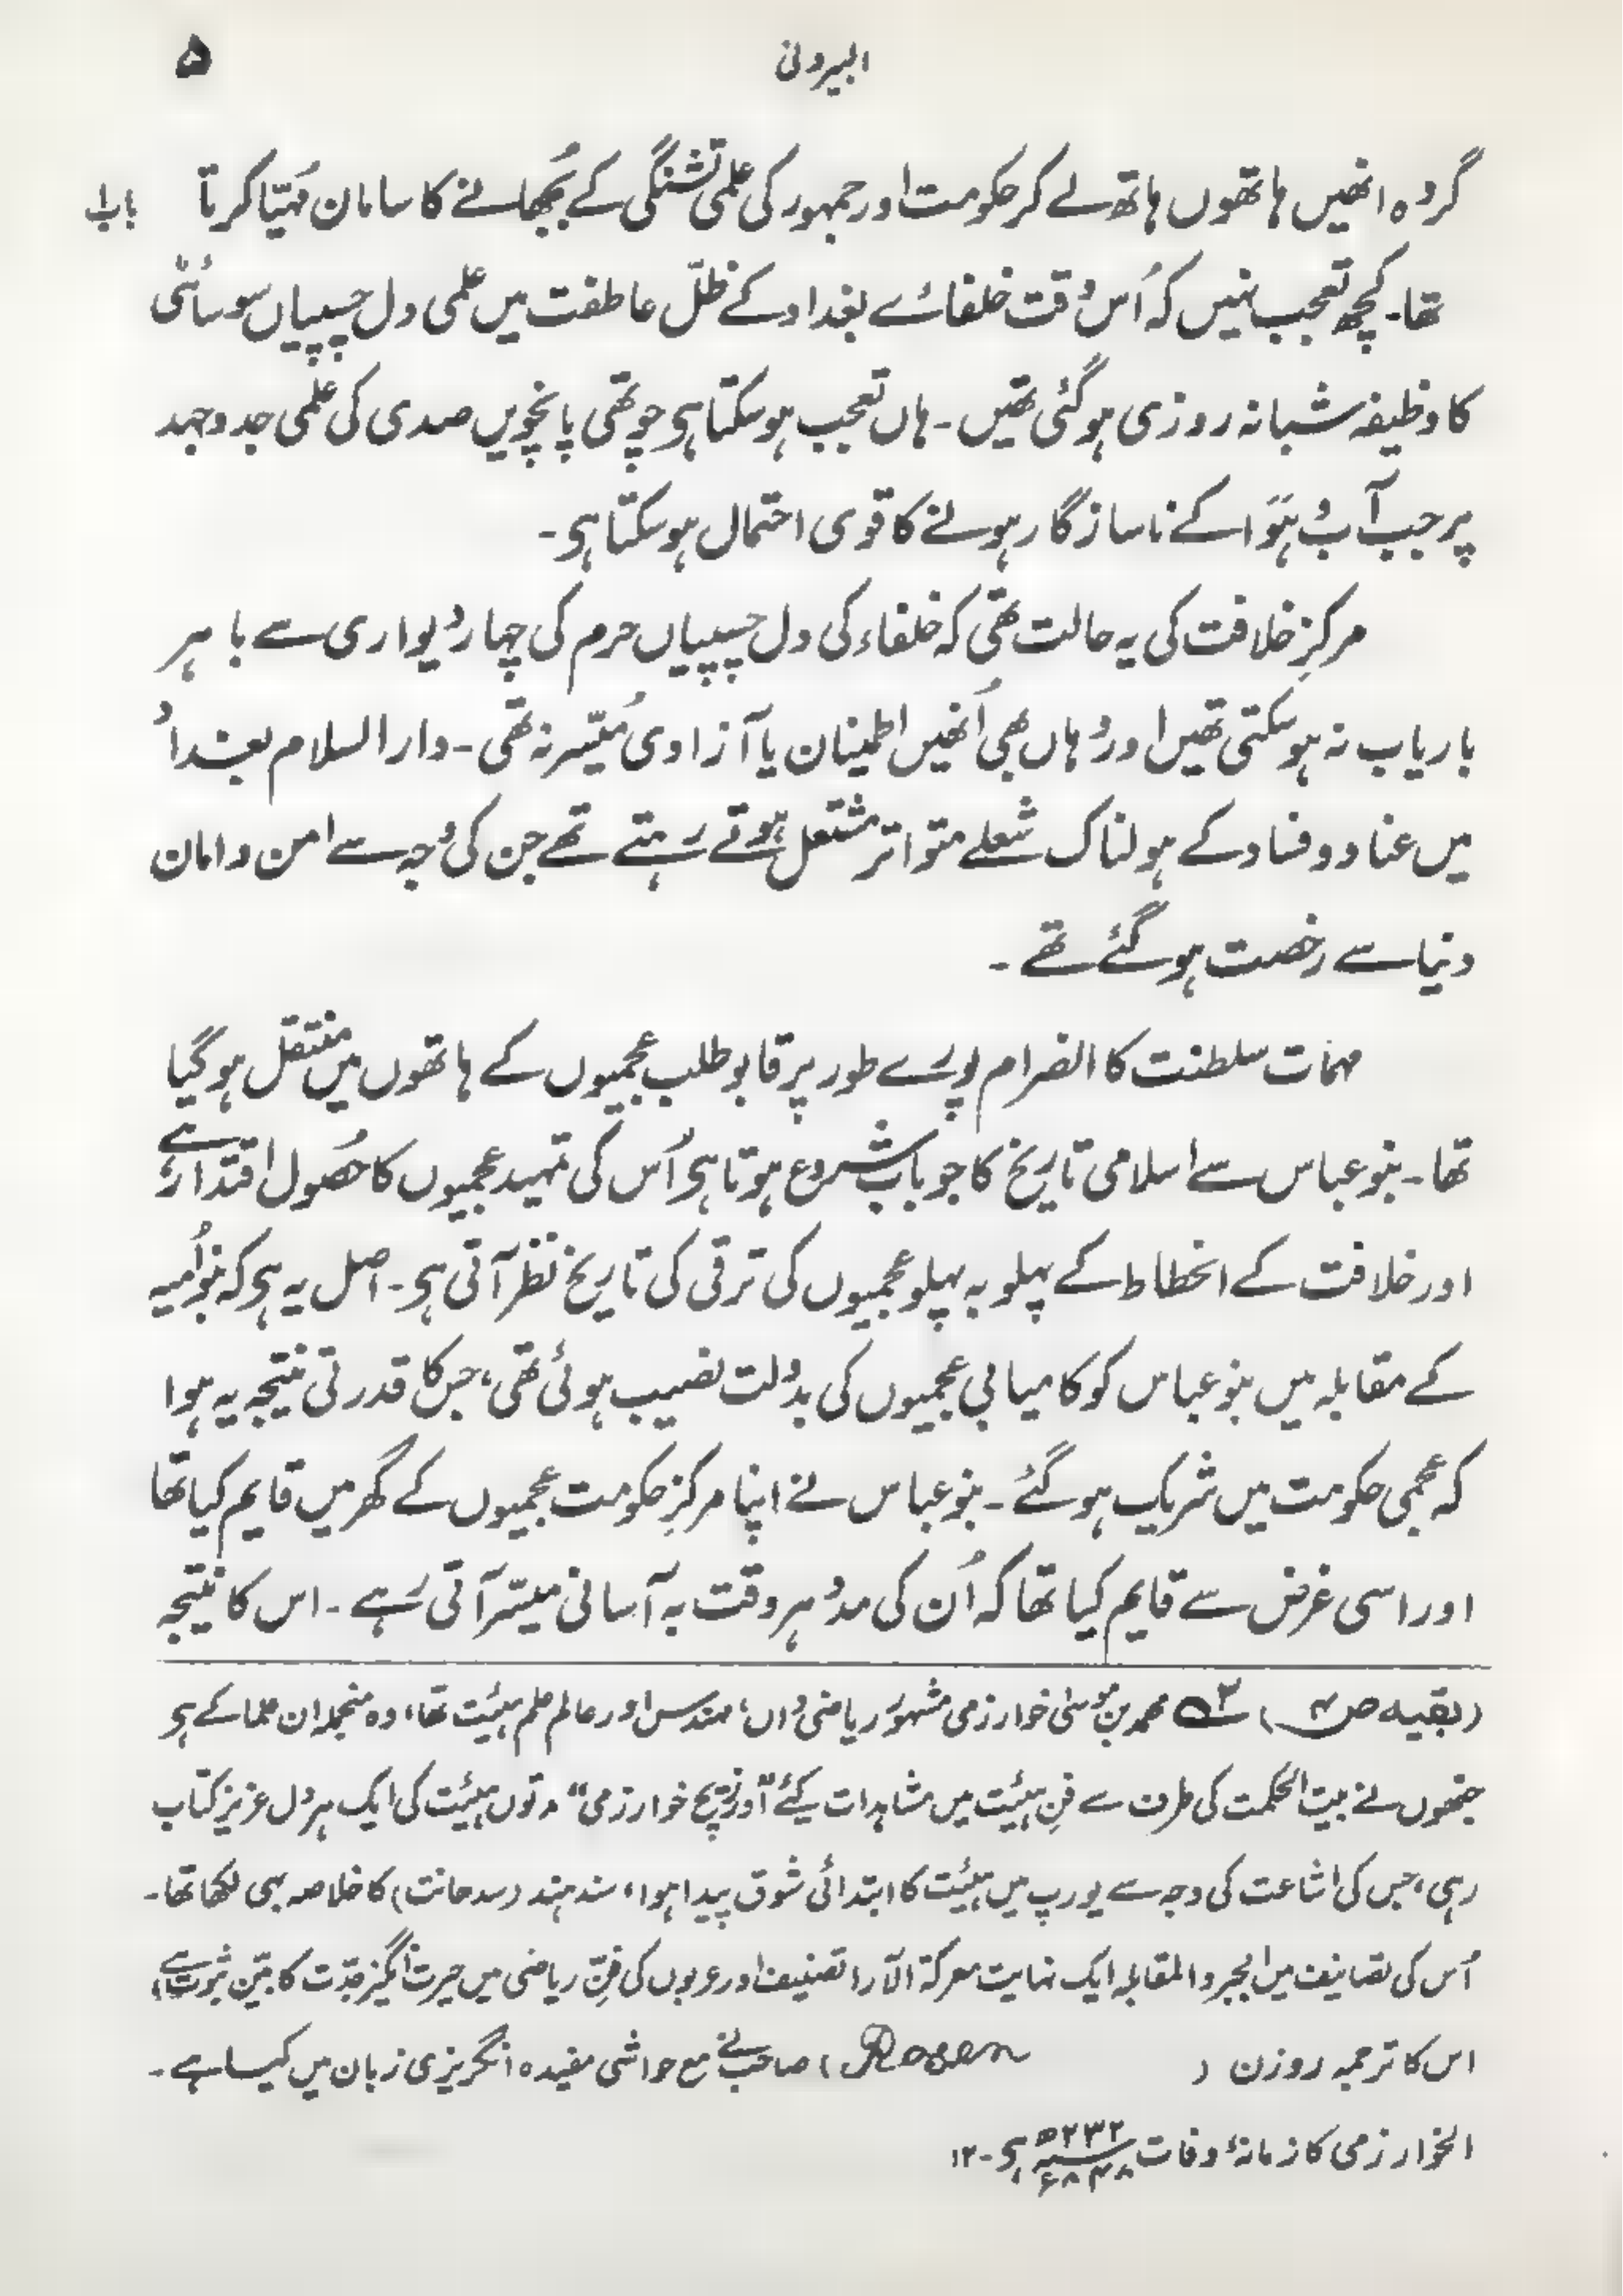 البیرونی
۵
گروہ انھیں ہاتھوں ہاتھ لے کر حکومت اور جمہور کی علمی تشنگی کے بُجھانے کا سامان مُہیّا کرتا
باب۱
تھا۔ کچھ تعجب نہیں کہ اُس وقت خلفائے بغداد کے ظلّ عاطفت میں علمی دل چسپیاں سوسائٹی
کا وظیفہ شبانہ روزی ہوگئی تھیں۔ ہاں تعجب ہوسکتا ہی چوتھی پانچویں صدی کی علمی جد و جہد
پر جب آب و ہَوَا کے ناسازگار ہونے کا قوی احتمال ہوسکتا ہی۔
مرکزِ خلافت کی یہ حالت تھی کہ خلفاء کی دل چسپیاں حرم کی چہار دیواری سے باہر
باریاب نہ ہوسکتی تھیں اور وہاں بھی اُنھیں اطمینان یا آزادی مُیّسر نہ تھی۔ دارالسلام بغداد
میں عناد و فساد کے ہولناک شعلے متواتر مشتعل ہوتے رہتے تھے جن کی وجہ سے امن و امان
دنیا سے رخصت ہوگئے تھے۔
مہمّات سلطنت کا انصرام پورے طور پر قابو طلب عجمیوں کے ہاتھوں میں منتقل ہوگیا
تھا۔ بنو عباس سے اسلامی تاریخ کا جو باب شروع ہوتا ہی اُس کی تمہید عجمیوں کا حصُول اقتدار ہے
اور خلافت کے انحطاط کے پہلو بہ پہلو عجمیوں کی ترقی کی تاریخ نظر آتی ہی۔ اصل یہ ہی کہ بنواُمیہ
کے مقابلہ میں بنو عباس کو کامیابی عجمیوں کی بدولت نصیب ہوئی تھی، جس کا قدرتی نتیجہ یہ ہوا
کہ عجمی حکومت میں شریک ہوگئے۔ بنو عباس نے اپنا مرکزِ حکومت عجمیوں کے گھر میں قایم کیا تھا
اور اسی غرض سے قایم کیا تھا کہ اُن کی مدد ہر وقت بہ آسانی میسّر آتی رَہے۔ اس کا نتیجہ
(بقیہ ص۴) ۳؎ محمد بن موسیٰ خوارزمی مشہور ریاضی داں، مہندس اور عالم علم ہیئت تھا، وہ منجملہ ان علما کے ہی
جنھوں نے بیت الحکمت کی طرف سے فنِ ہیئت میں مشاہدات کئے اور "زیچ خوارزمی" مدتوں ہیئت کی ایک ہر دل عزیز کتاب
رہی، جس کی اشاعت کی وجہ سے یورپ میں ہیئت کا ابتدائی شوق پیدا ہوا، سند ہند (سدھانت) کا خلاصہ بھی لکھا تھا۔
اُس کی تصانیف میں الجبر و المقابلہ ایک نہایت معرکۃ الآرا تصنیف اور عربوں کی فنِّ ریاضی میں حیرت انگیز جدّت کا بیّن ثبوت ہے،
اس کا ترجمہ روزن (Rosen) صاحب نے مع حواشی مفیدہ انگریزی زبان میں کیا ہے۔
الخوارزمی کا زمانۂ وفات ۲۳۲ھ / ۸۴۸ء ہی۔ ۱۲